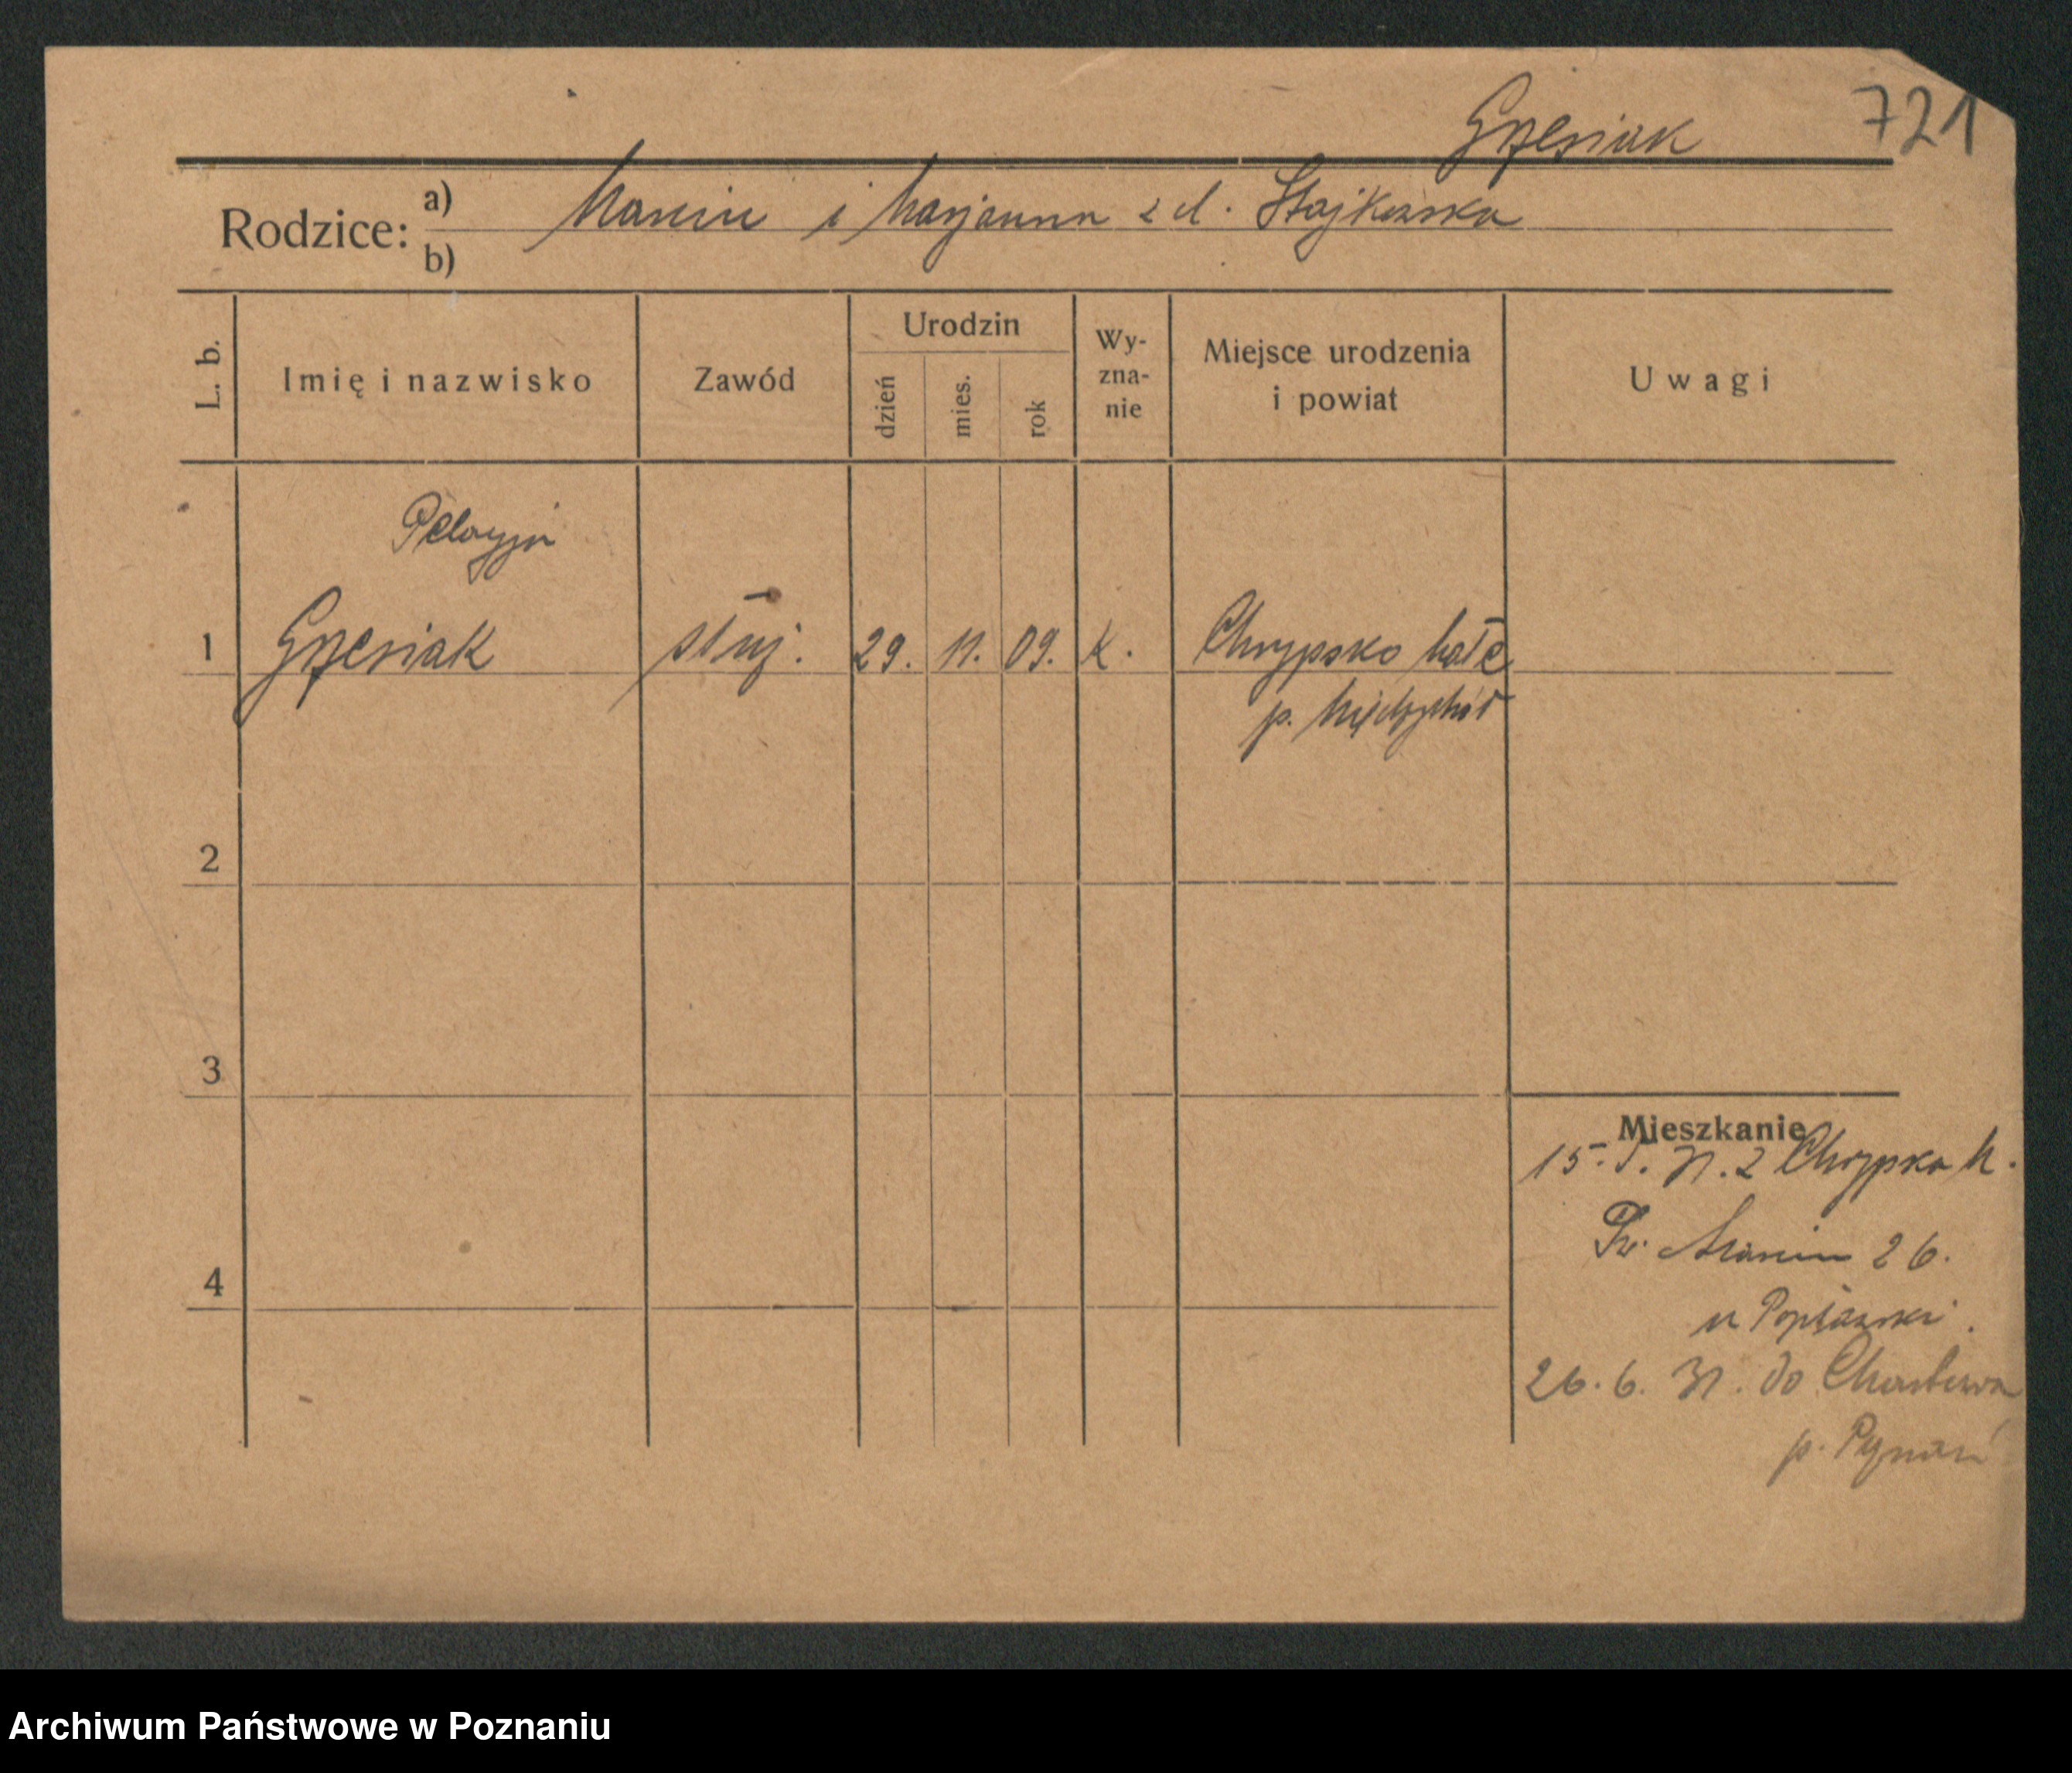 Grzesiak 721
Rodzice: a) Marcin i Marjanna z d. Stajkowska
b)
L. b.
Imię i nazwisko
Zawód
Urodzin
dzień
mies.
rok
Wy-
zna-
nie
Miejsce urodzenia
i powiat
Uwagi
Pelagja
1 Grzesiak służ. 29. 11. 09. K. Chrypsko Małe
p. Międzychód
2
3
Mieszkanie
15. 5. 31. z Chrypska M.
Św. Marcin 26.
u Popławski.
4
26. 6. 31. do
p. Poznań
Archiwum Państwowe w Poznaniu